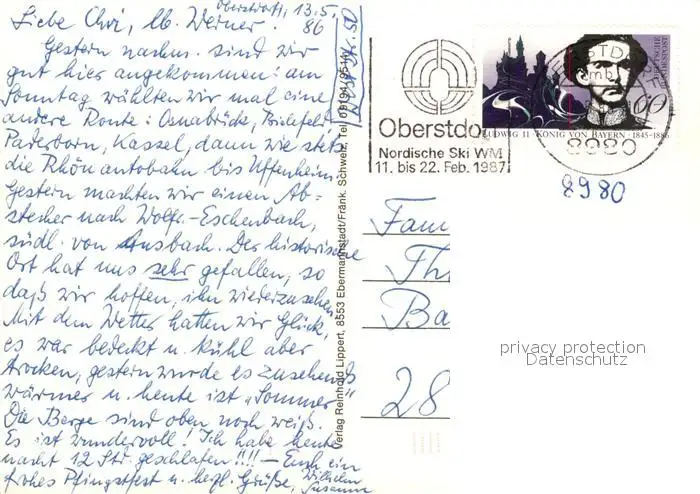 Oberstdorf, 13.5.
86
Liebe Chri, lb. Werner.
Gestern nachm. sind wir
gut hier angekommen: am
Sonntag wählten wir mal eine
andere Route: Osnabrück, Bielefeld,
Paderborn, Kassel, dann wie stets
die Rhönautobahn bis Uffenheim.
Gestern machten wir einen Ab-
stecher nach Wolfr.-Eschenbach,
südl. von Ansbach. Der historische
Ort hat uns sehr gefallen, so
daß wir hoffen, ihn wiederzusehen.
Mit dem Wetter hatten wir Glück,
es war bedeckt u. kühl aber
trocken, gestern wurde es zusehends
wärmer u. heute ist „Sommer"
Die Berge sind oben noch weiß.
Es ist wundervoll! Ich habe heute
nacht 12 Std. geschlafen!!!! – Euch ein
frohes Pfingstfest u. herzl. Grüße, Wilhelm
Susanne
Verlag Reinhold Lippert, 8553 Ebermannstadt/Fränk. Schweiz, Tel. 09194/9514
Oberstdorf
Nordische Ski WM
11. bis 22. Feb. 1987
DEUTSCHE
BUNDESPOST
60
LUDWIG II · KÖNIG VON BAYERN · 1845-1886
8980
8980
Fam
Th
Ba
28
privacy protection
Datenschutz